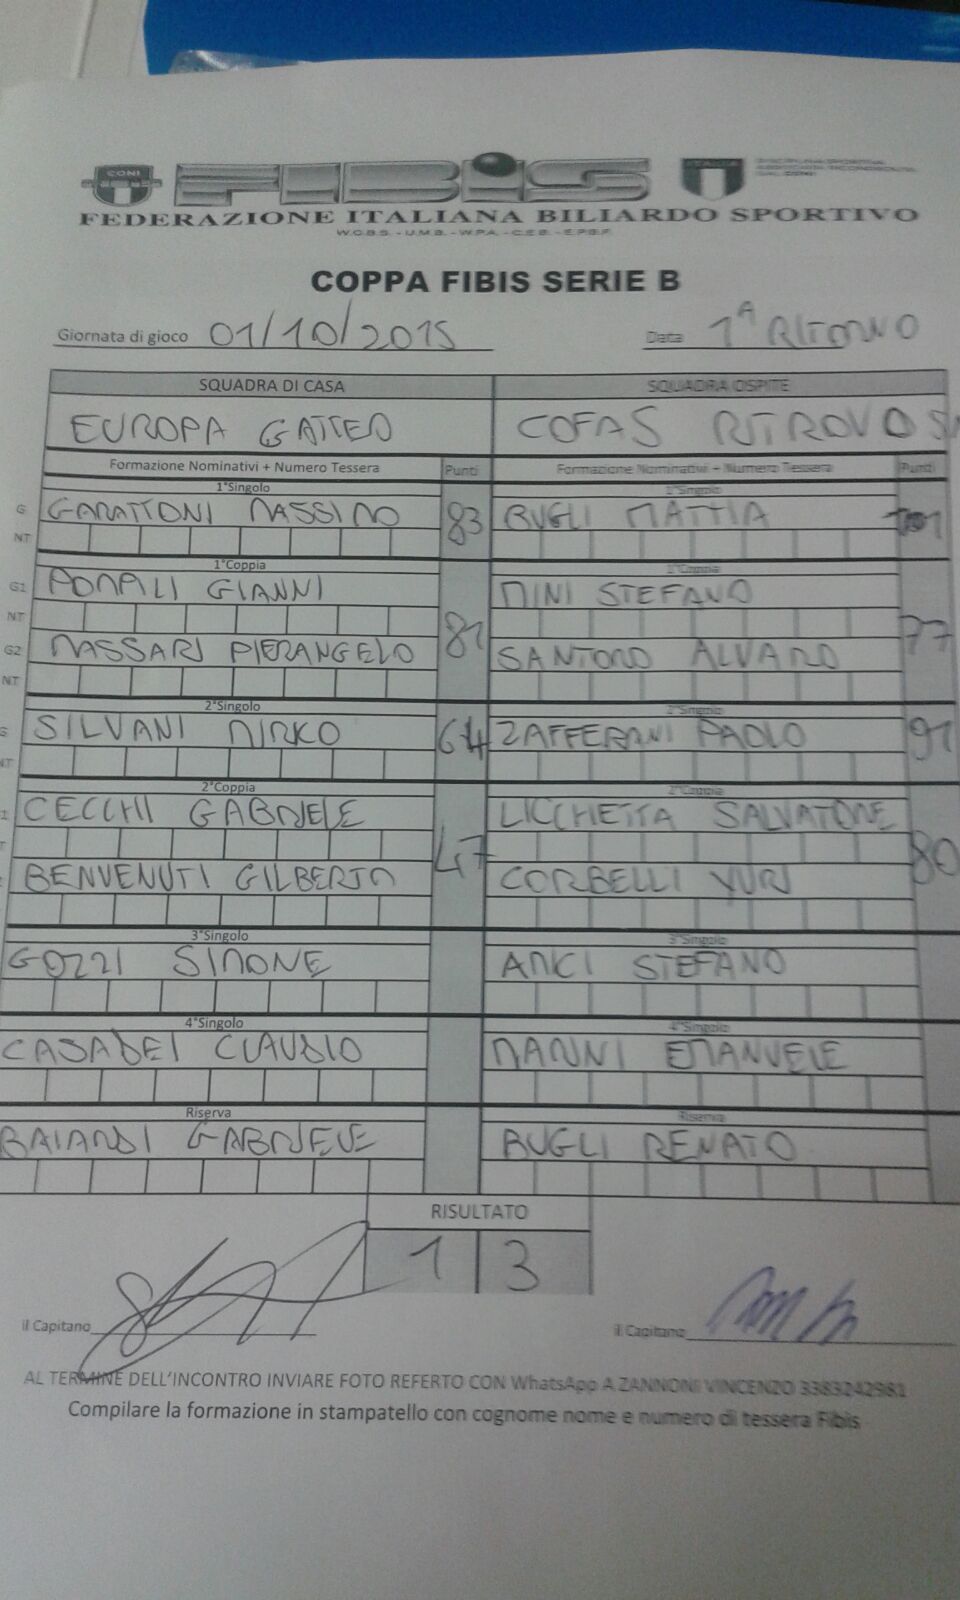 CONI FIBIS ITALIA
FEDERAZIONE ITALIANA BILIARDO SPORTIVO
W.C.B.S. - U.M.B. - W.P.A. - C.E.B. - E.P.B.F.
COPPA FIBIS SERIE B
Giornata di gioco 01/10/2015 Data 1ª RITORNO
SQUADRA DI CASA SQUADRA OSPITE
EUROPA GATTEO COFAS RITROVO
Formazione Nominativi + Numero Tessera Punti Formazione Nominativi – Numero Tessera Punti
1°Singolo 1°Singolo
G GARATTONI MASSIMO 83 BUGLI MATTIA
NT
1°Coppia 1°Coppia
G1 POMPILI GIANNI MINI STEFANO
NT 81 77
G2 MASSARI PIERANGELO SANTORO ALVARO
NT
2°Singolo 2°Singolo
SILVANI MIRKO 64 ZAFFERANI PAOLO 91
2°Coppia 2°Coppia
CECCHI GABRIELE LICCHETTA SALVATORE
47 80
BENVENUTI GILBERTO CORBELLI YURI
3°Singolo 3°Singolo
GOZZI SIMONE AMICI STEFANO
4°Singolo 4°Singolo
CASADEI CLAUDIO MANNI EMANUELE
Riserva Riserva
BAIARDI GABRIELE BUGLI RENATO
RISULTATO
1 3
il Capitano il Capitano
AL TERMINE DELL'INCONTRO INVIARE FOTO REFERTO CON WhatsApp A ZANNONI VINCENZO 3383242981
Compilare la formazione in stampatello con cognome nome e numero di tessera Fibis